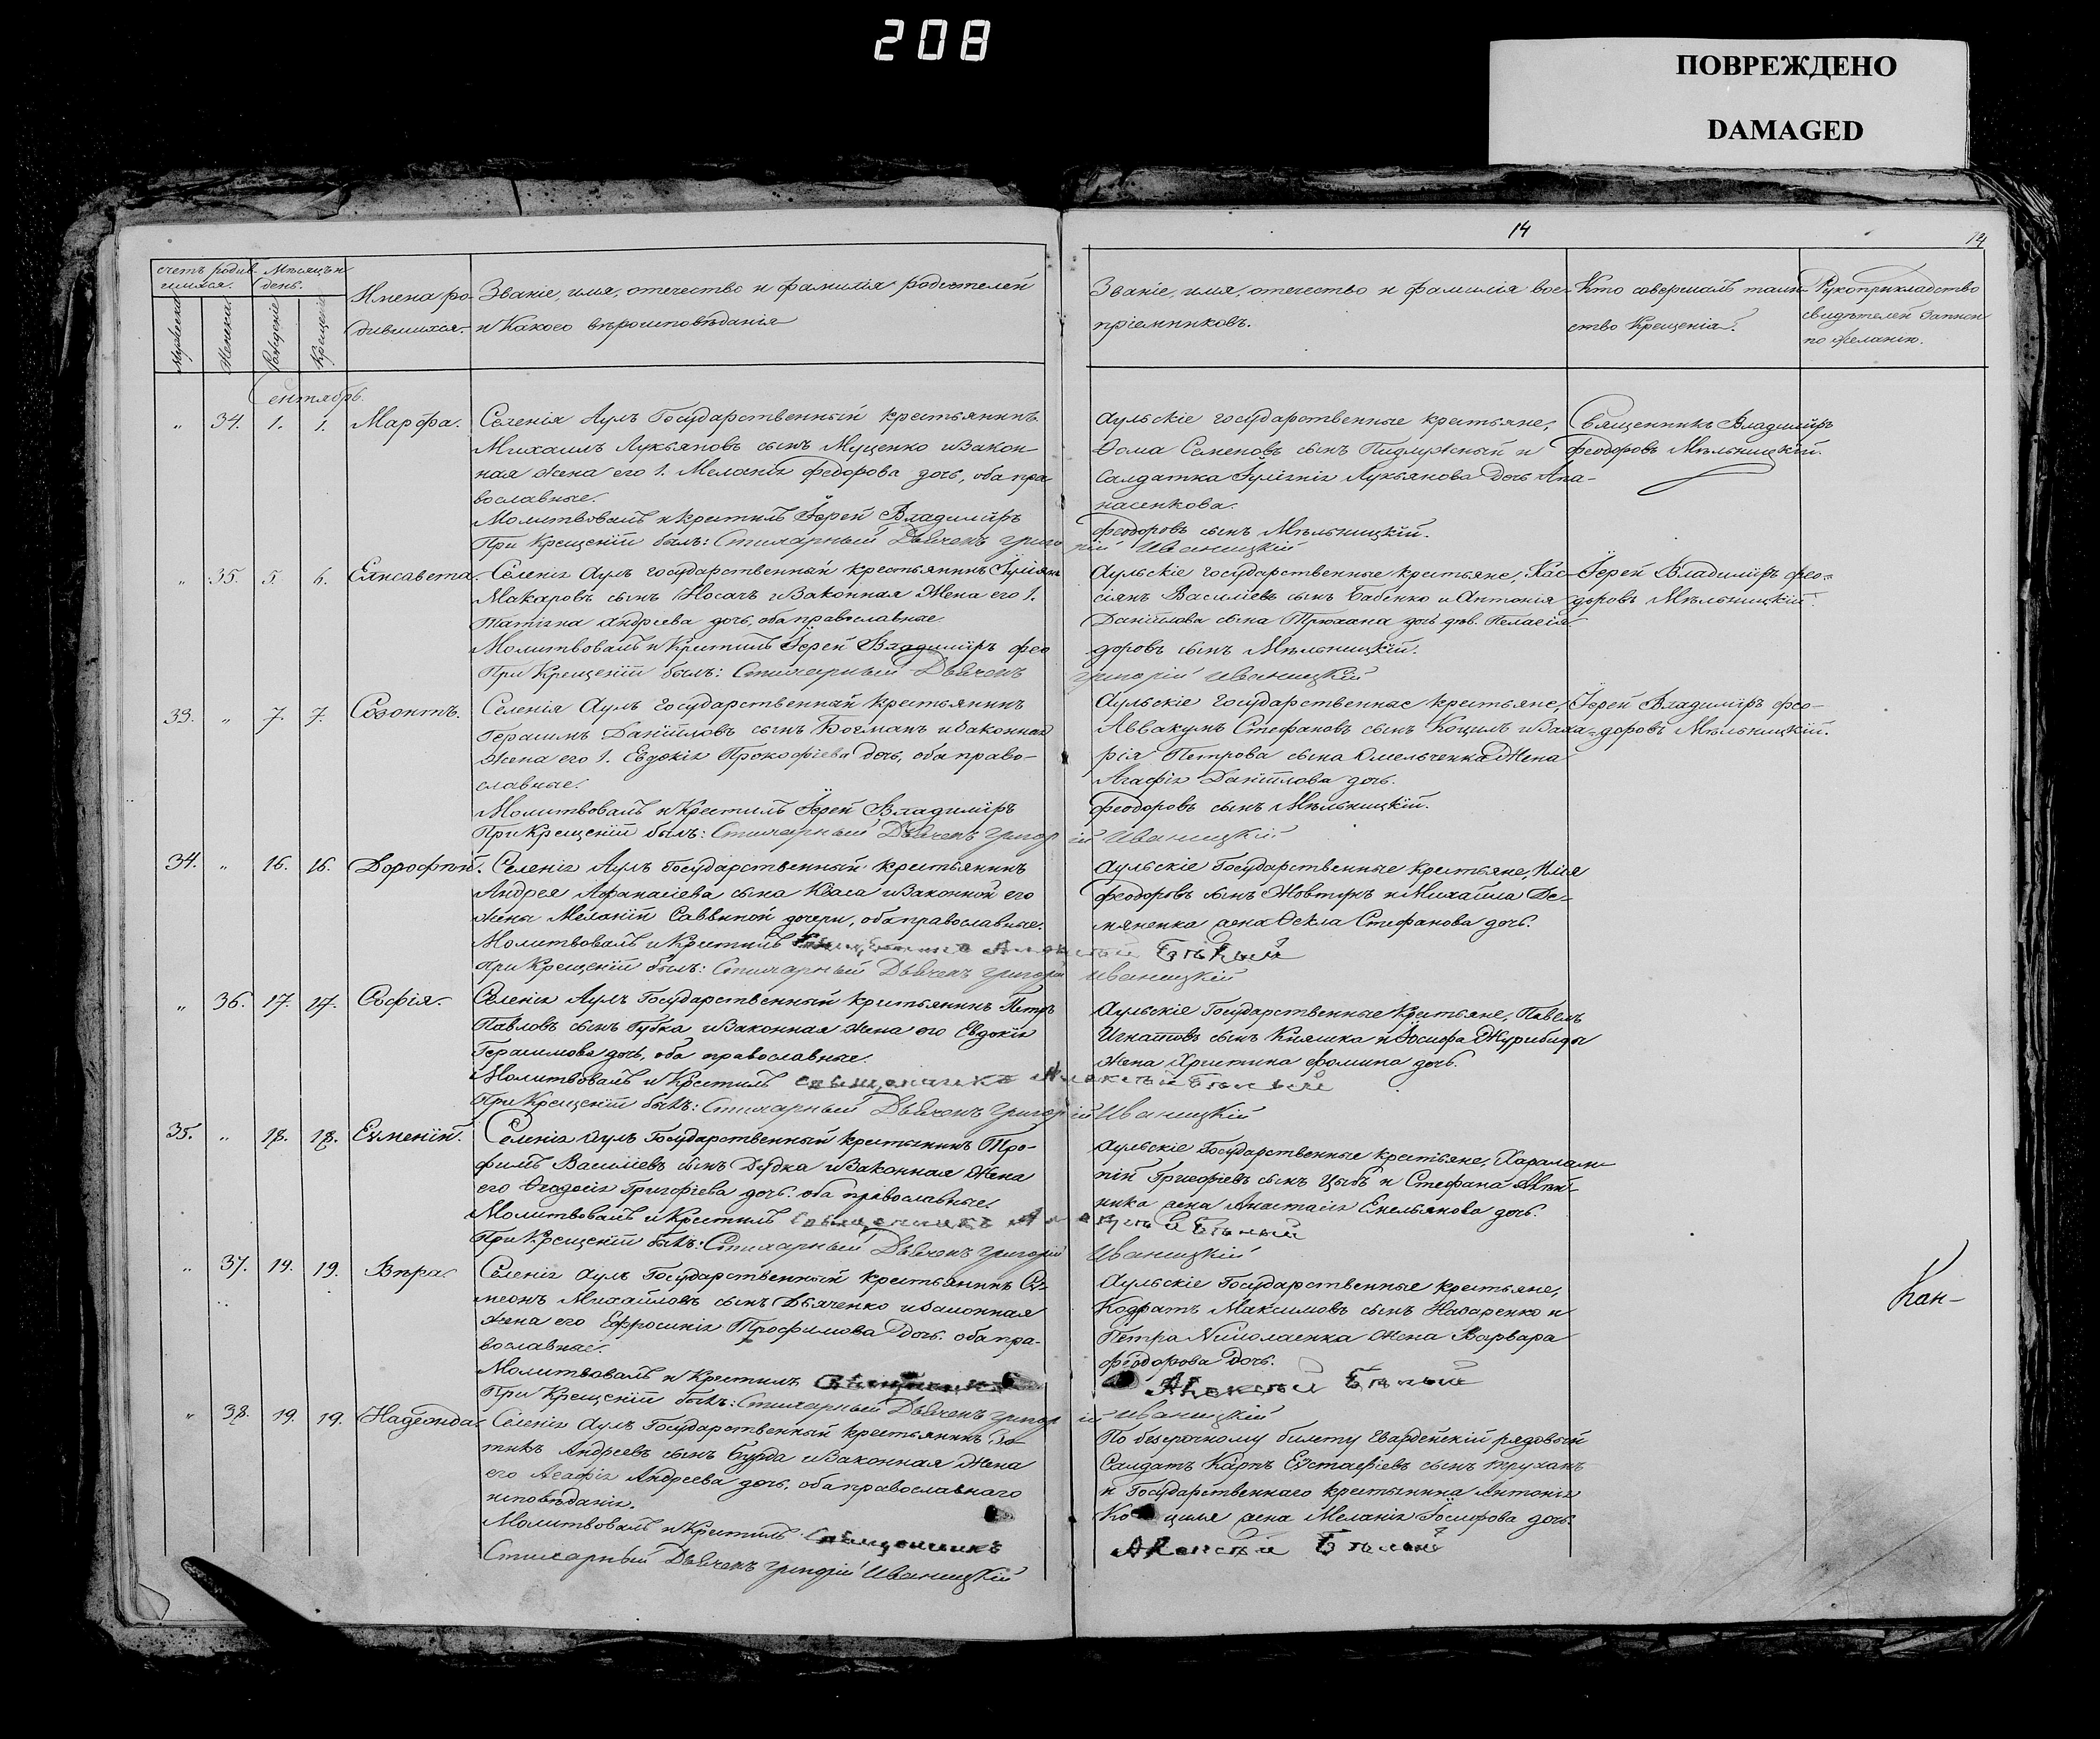 208
ПОВРЕЖДЕНО
DAMAGED
14
14
счетъ родив-
шихся.
Мѣсяцъ и
день.
Имена ро-
дившихся.
Званіе, имя, отечество и фамилія родителей
и Какого вѣроисповѣданія
Званіе, имя, отечество и фамилія вос-
пріемниковъ.
Кто совершалъ таин-
ство Крещенія.
Рукоприкладство
свидѣтелей записи
по желанію.
Мужеска
Женска.
Рожденіе
Крещеніе
Сентябрь.
" 34. 1. 1. Марфа.
Селенія Аулъ Государственный крестьянинъ
Михаилъ Лукьяновъ сынъ Муценко и Закон-
ная жена его 1. Меланія Федорова дочь, оба пра-
вославные.
Молитвовалъ и крестилъ Іерей Владиміръ
При Крещеніи былъ: Стихарный Дьячекъ Григо
Аульскіе государственные крестьяне,
Ѳома Семеновъ сынъ Пидлужный и
Салдатка Іулітнія Лукьянова Дочь Апа-
насенкова.
Феодоровъ сынъ Мѣльницкій.
рій Иваницкій
Священникъ Владиміръ
Феодоровъ Мѣльницкій.
" 35. 5. 6. Елисавета.
Селенія Аулъ государственный крестьянинъ
Макаровъ сынъ Носачъ и Законная Жена его 1.
Татіана Андреева дочь, оба православные.
Молитвовалъ и Крестилъ Іерей Владиміръ Фео
При Крещеніи былъ: Стихарный Дьячекъ
Аульскіе государственные крестьяне, Кас-
сіянъ Василіевъ сынъ Бабенко и Антонія
Даніилова сына Трюхана дочь дѣв. Пелагія.
доровъ сынъ Мѣльницкій.
Григорій Иваницкій
Іерей Владиміръ Фео-
доровъ Мѣльницкій.
33. " 7. 7. Созонтъ.
Селенія Аулъ государственный крестьянинъ
Герасимъ Даніиловъ сынъ Бочманъ и Законная
Жена его 1. Евдокія Прокофіева Дочь, оба право-
славные.
Молитвовалъ и Крестилъ Іерей Владиміръ
При Крещеніи былъ: Стихарный Дьячекъ Григор
Аульскіе Государственные крестьяне,
Аввакумъ Стефановъ сынъ Коцилъ и Заха-
рія Петрова сына Омельченка Жена
Агафія Даніилова дочь.
Феодоровъ сынъ Мѣльницкій.
ій Иваницкій
Іерей Владиміръ Фео-
доровъ Мѣльницкій.
34. " 16. 16. Дорофей.
Селенія Аулъ Государственный крестьянинъ
Андрея Афанасіева сына Кваса и Законной его
Жены Меланіи Саввиной дочери, оба православные.
Молитвовалъ и Крестилъ Священникъ Алексѣй Бѣлый
При Крещеніи былъ: Стихарный Дьячекъ Григорій Иваницкій
Аульскіе Государственные крестьяне, Илія
Феодоровъ сынъ Жовтунъ и Михаила Де-
мяненка жена Ѳекла Стефанова дочь.
" 36. 17. 17. Софія.
Селенія Аулъ Государственный крестьянинъ Петръ
Павловъ сынъ Губка и Законная жена его Евдокія
Герасимова дочь, оба православные.
Молитвовалъ и Крестилъ Священникъ Алексѣй Бѣлый
При Крещеніи былъ: Стихарный Дьячекъ Григорій Иваницкій
Аульскіе Государственные Крестьяне, Павелъ
Игнатовъ сынъ Кияшка и Іосифа Журибиды
жена Христина Фомина дочь.
35. " 18. 18. Евменій.
Селенія Аулъ Государственный крестьянинъ Тро-
фимъ Василіевъ сынъ Дудка и Законная Жена
его Ѳеодосія Григоріева дочь. оба православные.
Молитвовалъ и Крестилъ Священникъ Алексѣй Бѣлый
При Крещеніи былъ: Стихарный Дьячекъ Григорій Иваницкій
Аульскіе Государственные крестьяне, Харалам-
пій Григоріевъ сынъ Цыбъ и Стефана
жена Анастасія Емельянова дочь.
" 37. 19. 19. Вѣра.
Селенія Аулъ Государственный крестьянинъ Си-
меонъ Михайловъ сынъ Дьяченко и Законная
жена его Ефросинія Трофимова Дочь. оба пра-
вославные.
Молитвовалъ и Крестилъ Священникъ
При Крещеніи былъ: Стихарный Дьячекъ Григор
Аульскіе Государственные крестьяне,
Кодратъ Максимовъ сынъ Назаренко и
Петра Николаенка жена Варвара
Феодорова Дочь.
Алексѣй Бѣлый
ій Иваницкій
Кон-
" 38. 19. 19. Надежда.
Селенія Аулъ Государственный крестьянинъ Зо-
тикъ Андреевъ сынъ Бурда и Законная Жена
его Агафія Андреева дочь, оба православнаго
исповѣданія.
Молитвовалъ и Крестилъ Священникъ
Стихарный Дьячекъ Григорій Иваницкій
По безсрочному билету Гвардейскій рядовый
Салдатъ Карпъ Евстафіевъ сынъ Труханъ
и Государственнаго крестьянина Антонія
Коциля жена Меланія Іосифова дочь.
Алексѣй Бѣлый